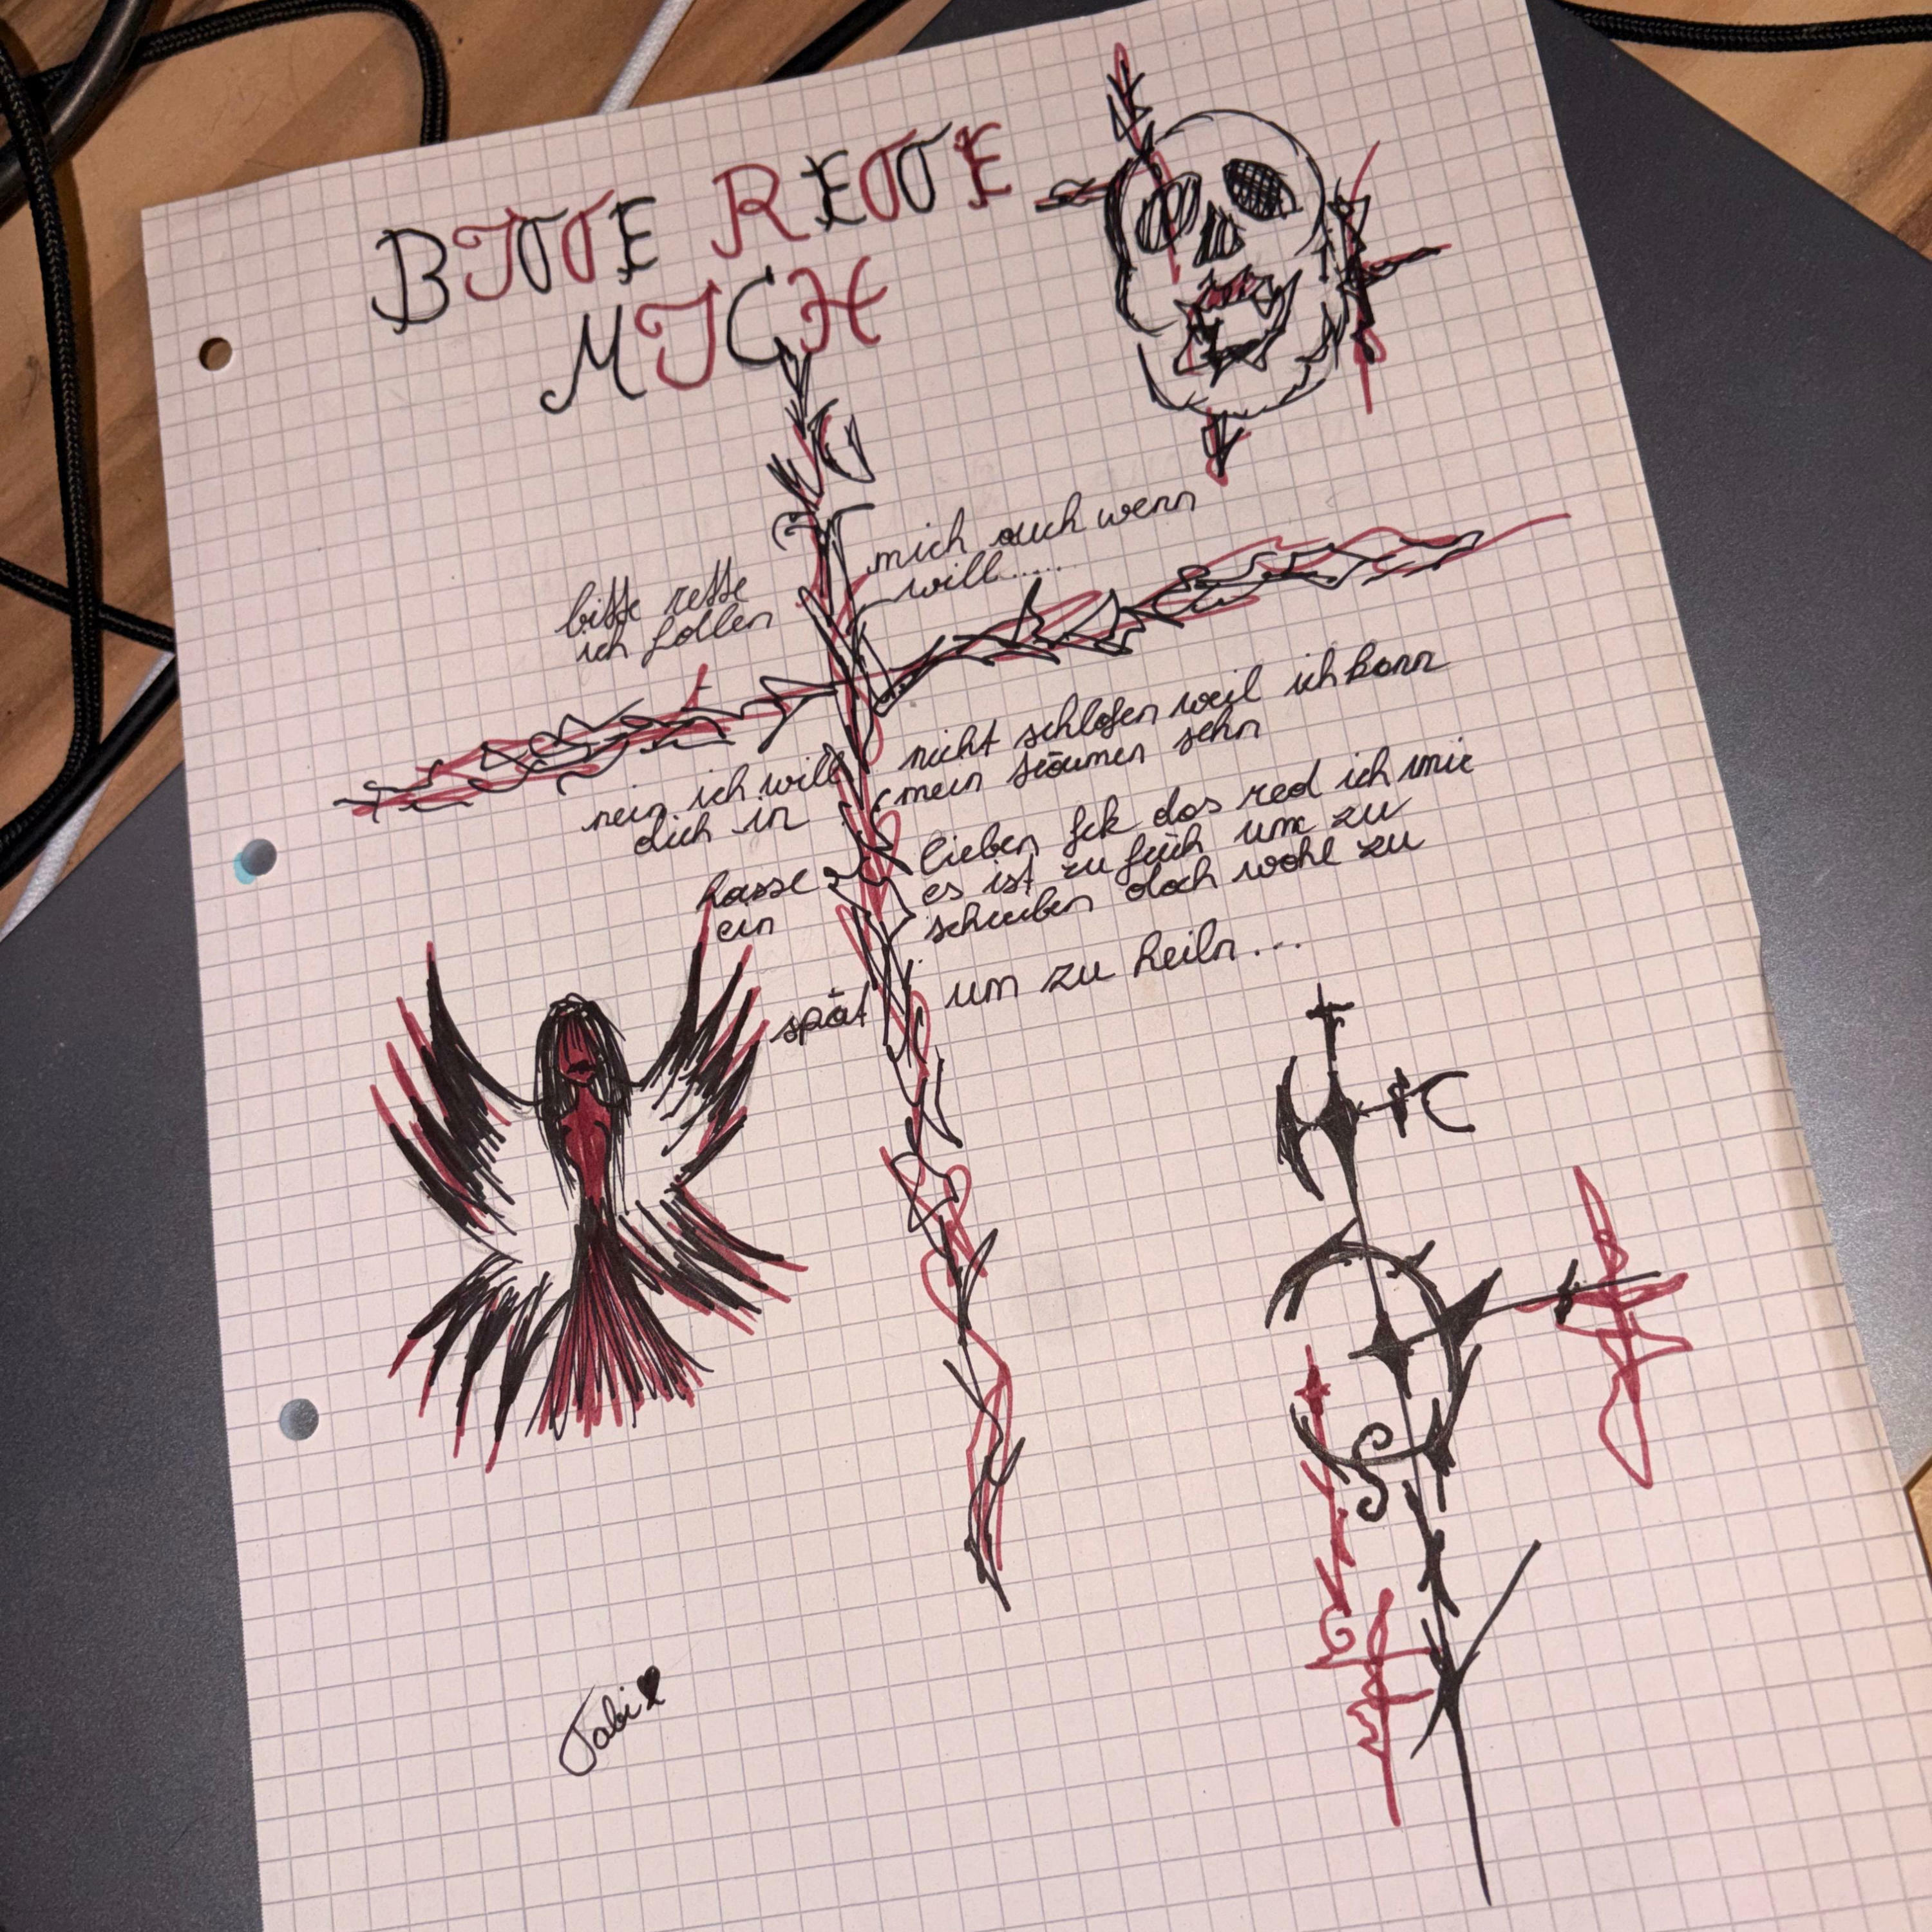 BITTE RETTE
MICH
bitte rette mich auch wenn
ich fallen will.....
nein ich will nicht schlafen weil ich kann
dich in mein träumen sehn
hasse lieben fck das red ich mir
ein es ist zu früh um zu
schreiben doch wohl zu
spät um zu heiln...
Tabi